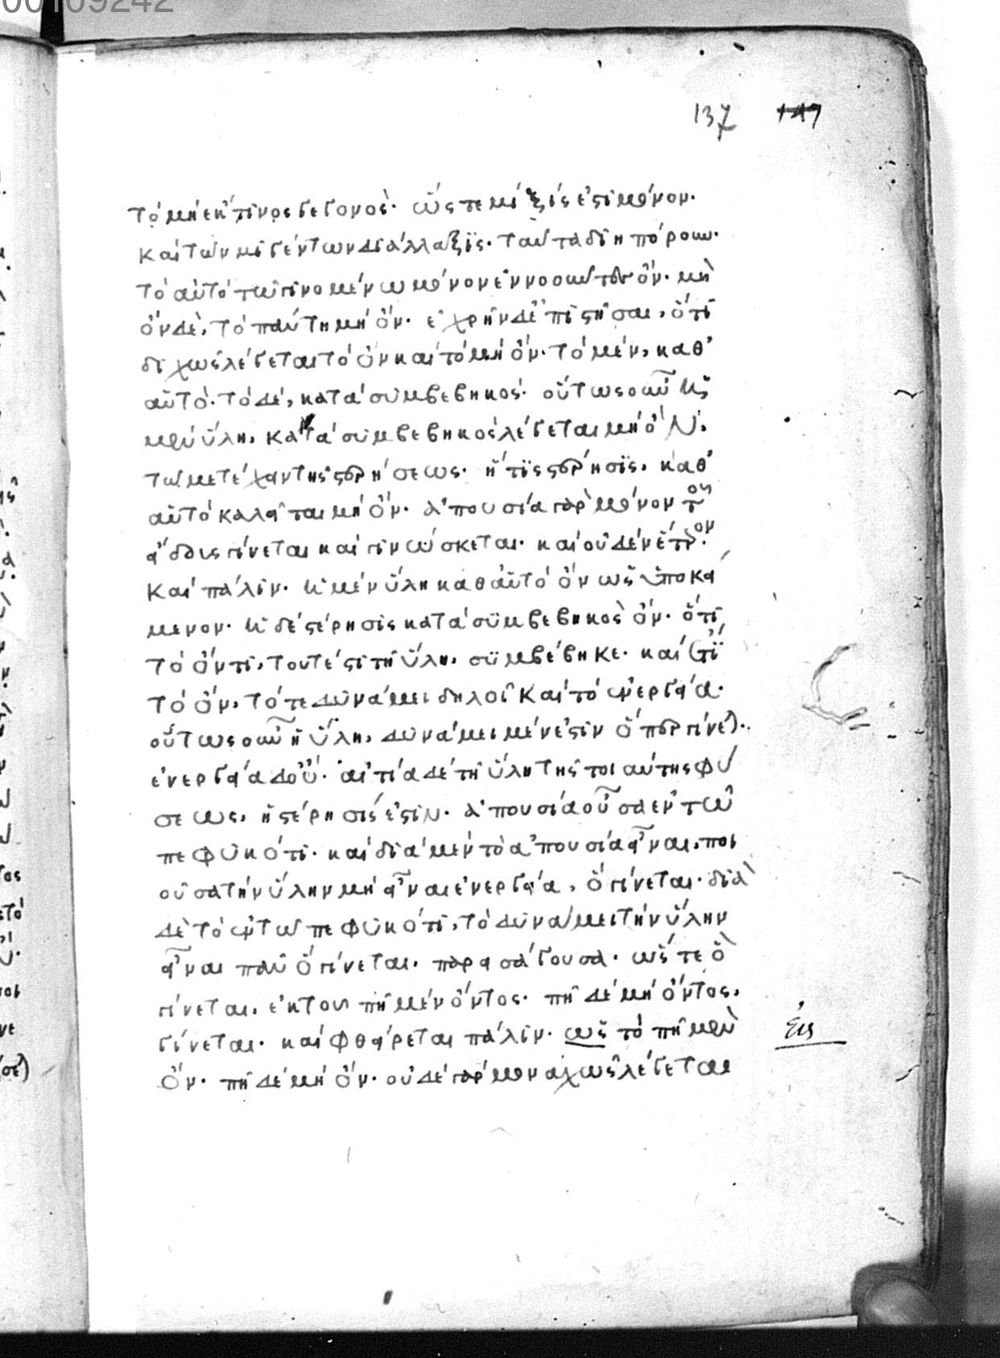 00109242
137 147
τὸ μὴ ἔκ τινος γεγονός· ὥστε μίξίς ἐστι μόνον·
καὶ τῶν μιγέντων διάλλαξις· ταῦτα δὲ ἠπόρουν·
τὸ αὐτὸ τῷ γινομένῳ μόνον ἐννοοῦντες ὄν· μὴ
ὂν δὲ, τὸ πάντῃ μὴ ὄν· ἐχρῆν δὲ ἐπιστῆσαι, ὅτι
διχῶς λέγεται τὸ ὂν καὶ τὸ μὴ ὄν· τὸ μὲν, καθ'
αὑτό· τὸ δὲ, κατὰ συμβεβηκός· οὕτως οὖν ἡ
μὲν ὕλη, κατὰ συμβεβηκὸς λέγεται μὴ ὄν,
τῷ μετέχειν τῆς στερήσεως· ἥτις στέρησις, καθ'
αὑτὸ καλεῖται μὴ ὄν· ἀπουσία γὰρ μόνον τοῦ
εἴδους γίνεται καὶ γινώσκεται· καὶ οὐδὲν ἕτερον·
καὶ πάλιν· ἡ μὲν ὕλη καθ' αὑτὸ ὂν ὡς ὑποκεί
μενον· ἡ δὲ στέρησις κατὰ συμβεβηκὸς ὄν· ὅτι
τῷ ὄντι, τουτέστι τῇ ὕλῃ, συμβέβηκε· καὶ ἔτι
τὸ ὂν, τό τε δυνάμει δηλοῖ καὶ τὸ ἐνεργείᾳ·
οὕτως οὖν ἡ ὕλη, δυνάμει μέν ἐστιν ὅπερ γίνεται·
ἐνεργείᾳ δ' οὔ· αἰτία δὲ τῇ ὕλῃ τῆς τοιαύτης φύ
σεως, ἡ στέρησίς ἐστιν· ἀπουσία οὖσα ἐν τῷ
πεφυκότι· καὶ διὰ μὲν τὸ ἀπουσία εἶναι, ποι
οῦσα τὴν ὕλην μὴ εἶναι ἐνεργείᾳ, ὃ γίνεται· διὰ
δὲ τὸ ἐν τῷ πεφυκότι, τὸ δυνάμει τὴν ὕλην
εἶναι πᾶν ὃ γίνεται· παρεισάγουσα· ὥστε ὃ
γίνεται, ἐκ τοῦ πῆ μὲν ὄντος· πῆ δὲ μὴ ὄντος,
γίνεται· καὶ φθείρεται πάλιν· ὡς τὸ πῆ μὲν
εἰς
ὄν· πῆ δὲ μὴ ὄν· οὐδὲ γὰρ μοναχῶς λέγεται